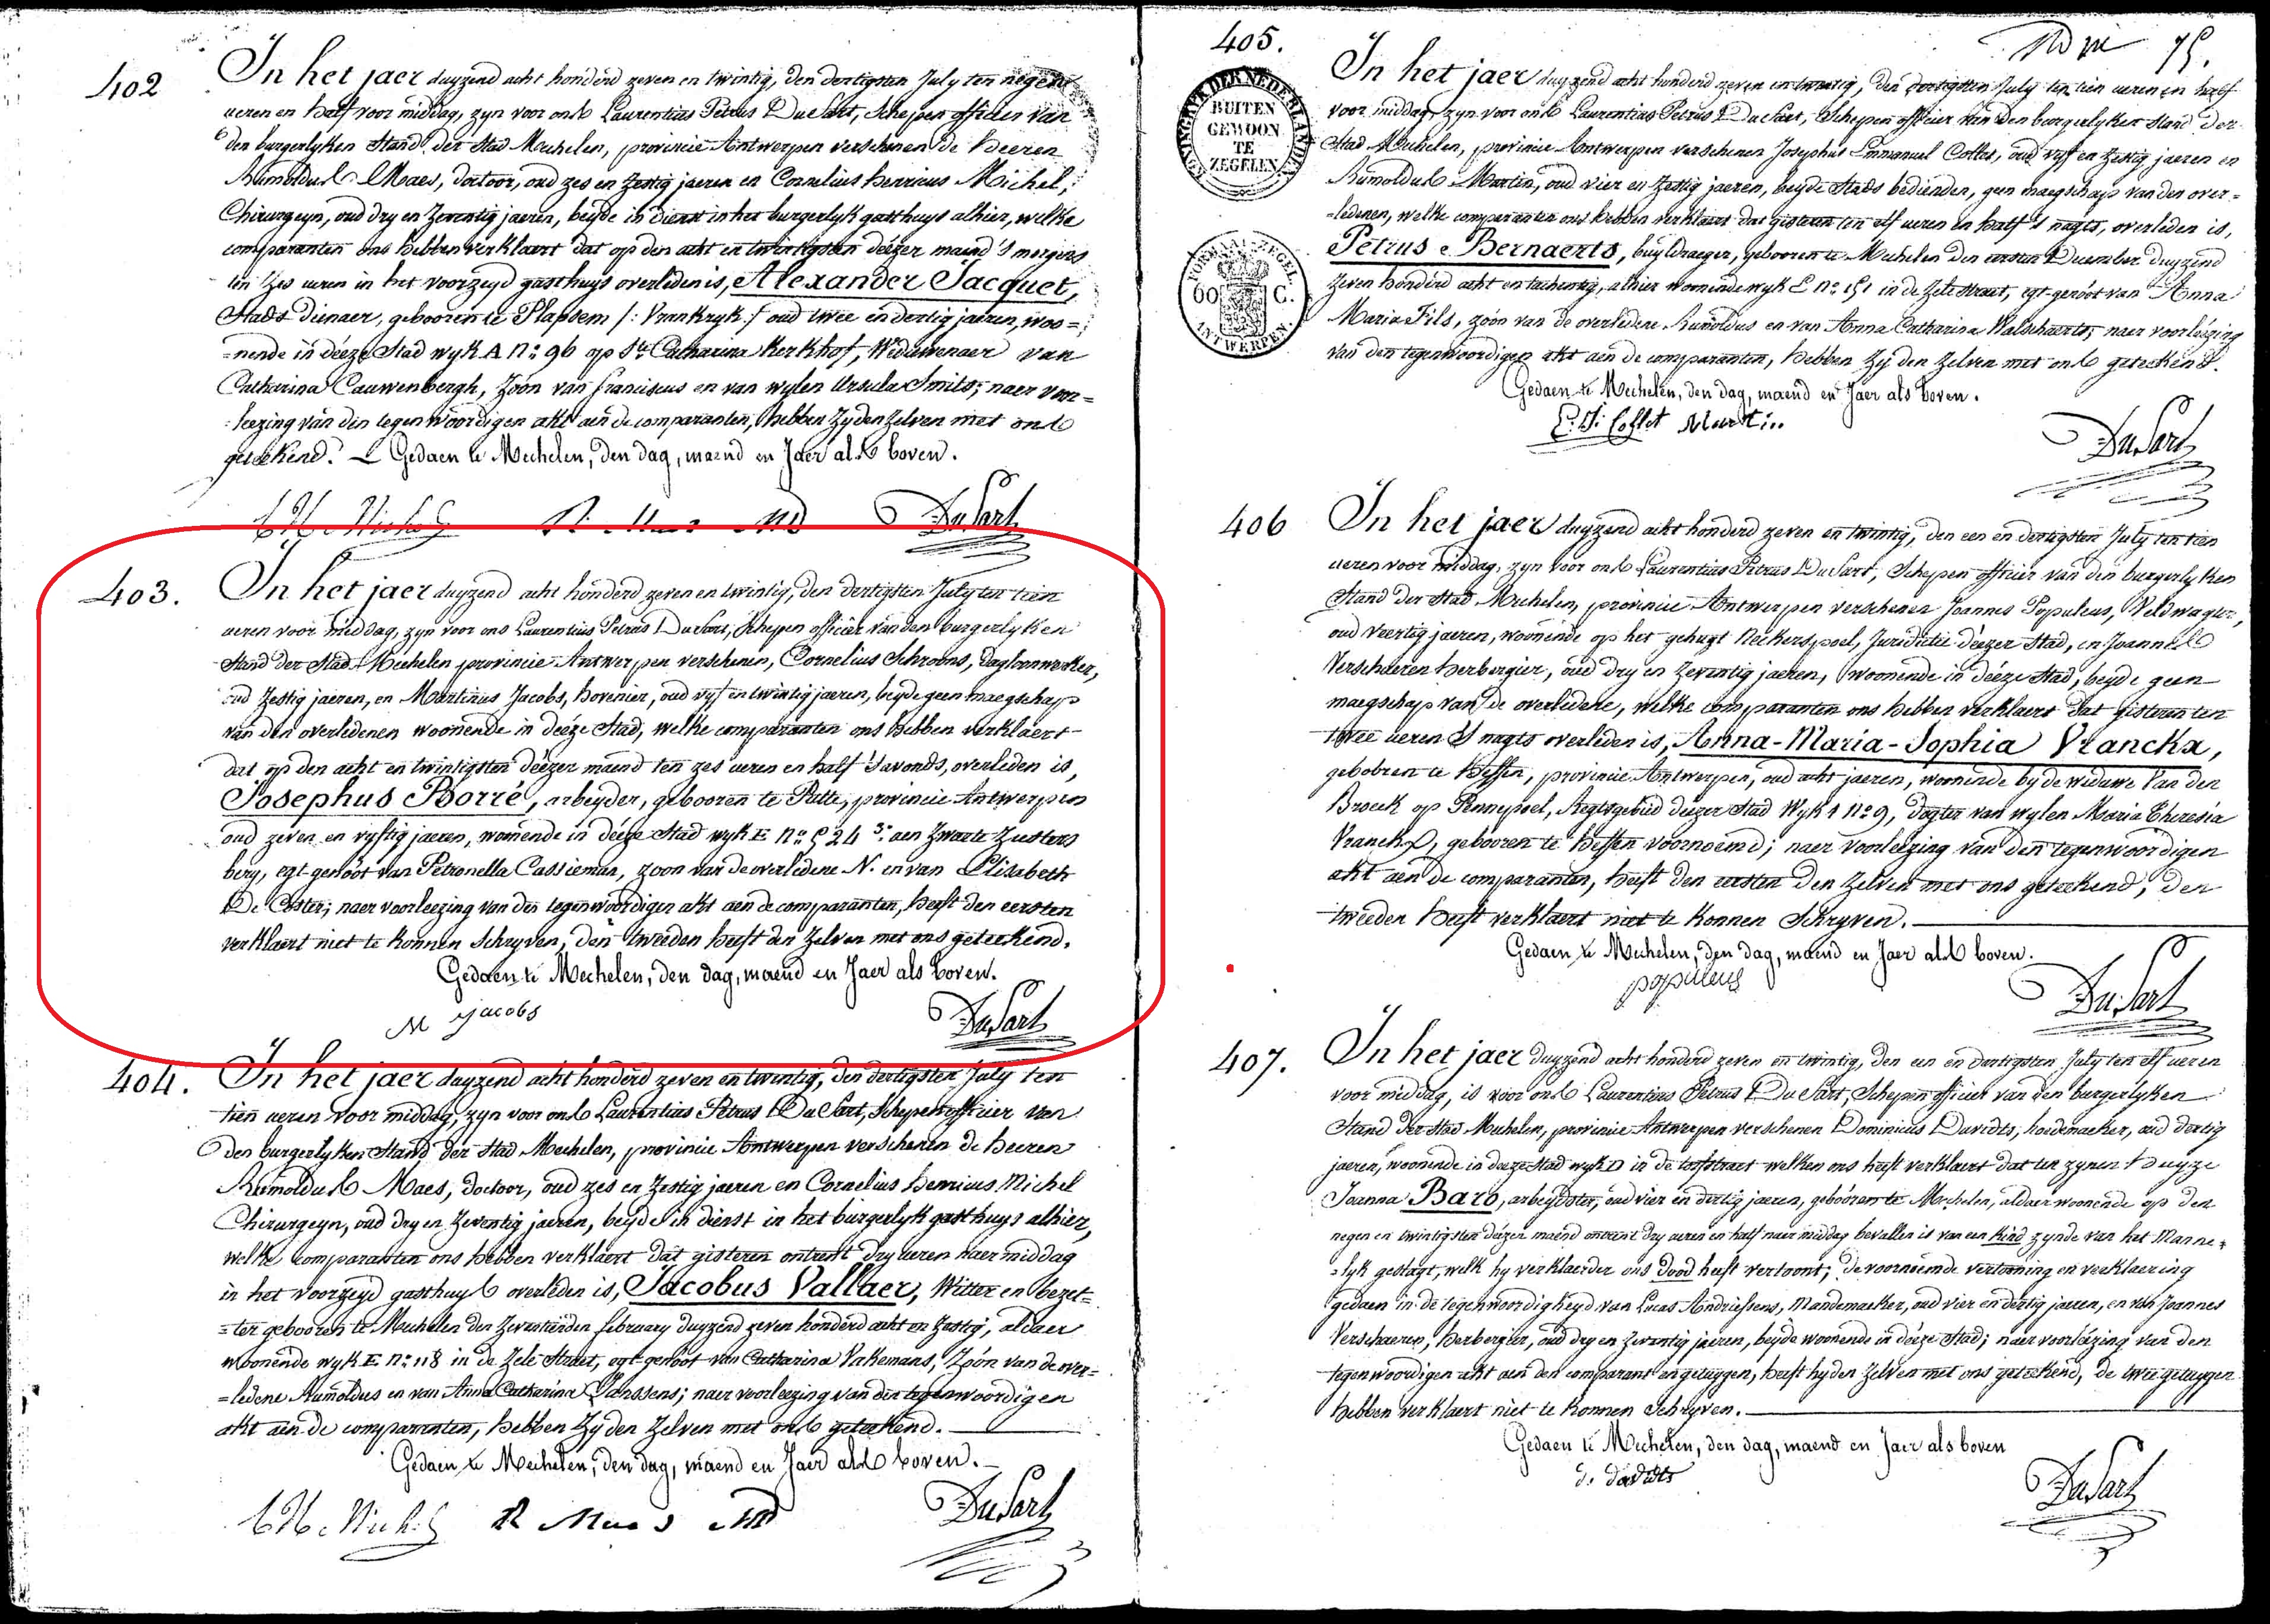 402
In het jaer duyzend acht honderd zeven en twintig, den dertigsten July ten negen
ueren en half voor middag, zyn voor ons Laurentius Petrus Du Sart, Schepen officier van
den burgerlyken Stand der Stad Mechelen, provincie Antwerpen verschenen de heeren
Rumoldus Maes, doctoor, oud zes en zestig jaeren en Cornelius Henricus Michel,
Chirurgeyn, oud dry en zeventig jaeren, beyde in dienst in het burgerlyk gasthuys alhier, welke
comparanten ons hebben verklaert dat op den acht en twintigsten deézer maend 's morgens
ten zes ueren in het voorzeyd gasthuys overleden is, Alexander Jacquet,
Stads dienaer, gebooren te Plapsem /: Vrankryk :/ oud twee en dertig jaeren, woo=
=nende in deéze Stad wyk A N.º 96 op Ste Catharina Kerkhof, Weduwenaer van
Catharina Cauwenbergh, zoon van Franciscus en van wylen Ursula Smits; naer voor=
leezing van den tegenwoordigen akt aen de comparanten, hebben zy den zelven met ons
geteekend. Gedaen te Mechelen, den dag, maend en Jaer als boven.
C H Michel R. Maes MD DuSart
403.
In het jaer duyzend acht honderd zeven en twintig, den dertigsten July ten tien
ueren voor middag, zyn voor ons Laurentius Petrus Du Sart, Schepen officier van den burgerlyken
Stand der Stad Mechelen provincie Antwerpen verschenen, Cornelius Schroons, dagloonwerker,
oud zestig jaeren, en Martinus Jacobs, hovenier, oud vyf en twintig jaeren, beyde geen maegschap
van den overledenen woonende in deéze Stad, welke comparanten ons hebben verklaert
dat op den acht en twintigsten deézer maend ten zes ueren en half 's avonds, overleden is,
Josephus Borré, arbeyder, gebooren te Putte, provincie Antwerpen
oud zeven en vyftig jaeren, woonende in deéze Stad wyk E N.º 524 3: aen Zwarte Zusters
berg, egt genoot van Petronella Cassieman, zoon van de overledene N. en van Elisabeth
De Coster; naer voorleezing van den tegenwoordigen akt aen de comparanten, heeft den eersten
verklaert niet te konnen Schryven, den tweeden heeft den zelven met ons geteekend.
Gedaen te Mechelen, den dag, maend en Jaer als boven.
M jacobs DuSart
404.
In het jaer duyzend acht honderd zeven en twintig, den dertigsten July ten
tien ueren voor middag, zyn voor ons Laurentius Petrus Du Sart, Schepen officier van
den burgerlyken Stand der Stad Mechelen, provincie Antwerpen verschenen de heeren
Rumoldus Maes, doctoor, oud zes en zestig jaeren en Cornelius Henricus Michel
Chirurgeyn, oud dry en zeventig jaeren, beyde in dienst in het burgerlyk gasthuys alhier,
welke comparanten ons hebben verklaert dat gisteren ontrent dry ueren naer middag
in het voorzeyd gasthuys overleden is, Jacobus Vallaer, Witter en bezet=
=ter gebooren te Mechelen den zeventienden february duyzend zeven honderd acht en zestig, aldaer
woonende wyk E N.º 118 in de Zele Straet, egt genoot van Catharina Vakemans, Zoon van de over=
=ledene Rumoldus en van Anna Catharina Janssens; naer voorleezing van den tegenwoordigen
akt aen de comparanten, hebben zy den zelven met ons geteekend.
Gedaen te Mechelen, den dag, maend en Jaer als boven.
C H Michel R Maes MD DuSart
75.
405.
BUITEN
GEWOON
TE
ZEGELEN
FORMAAT ZEGEL
60 C.
ANTWERPEN
In het jaer duyzend acht honderd zeven en twintig, den dertigsten July ten tien ueren en half
voor middag, zyn voor ons Laurentius Petrus Du Sart, Schepen officier van den burgerlyken Stand der
Stad Mechelen, provincie Antwerpen verschenen Josephus Emmanuel Collet, oud vyf en zestig jaeren en
Rumoldus Martin, oud vier en zestig jaeren, beyde Stads bedienden, geen maegschap van den over=
=ledenen, welke comparanten ons hebben verklaert dat gisteren ten elf ueren en half 's nagts, overleden is,
Petrus Bernaerts, buyldraeger, gebooren te Mechelen den eersten December duyzend
zeven honderd acht en tachentig, alhier woonende wyk E N.º 151 in de Zele straet, egt genoot van Anna
Maria Fils, zoon van de overledene Rumoldus en van Anna Catharina Walschaerts; naer voorleézing
van den tegenwoordigen akt aen de comparanten, hebben zy den zelven met ons geteekend.
Gedaen te Mechelen, den dag, maend en Jaer als boven.
Collet Martin
DuSart
406
In het jaer duyzend acht honderd zeven en twintig, den een en dertigsten July ten tien
ueren voor middag, zyn voor ons Laurentius Petrus Du Sart, Schepen officier van den burgerlyken
Stand der Stad Mechelen, provincie Antwerpen verschenen Joannes Populeus, Veldwagter,
oud veertig jaeren, woonende op het gehugt Neckerspoel, Jurisdictie deézer Stad, en Joannes
Verschaeren herbergier, oud dry en zeventig jaeren, woonende in deéze Stad, beyde geen
maegschap van de overledene, welke comparanten ons hebben verklaert dat gisteren ten
twee ueren 's nagts overleden is, Anna-Maria-Sophia Vranckx,
gebooren te Heffen, provincie Antwerpen, oud acht jaeren, woonende by de weduwe Van den
Broeck op Pennepoel, Regtsgebied deézer Stad Wyk 1 N.º 9, dogter van wylen Maria Theresia
Vranckx, gebooren te Heffen voornoemd; naer voorleézing van den tegenwoordigen
akt aen de comparanten, heeft den eersten den zelven met ons geteekend, den
tweeden heeft verklaert niet te konnen Schryven.
Gedaen te Mechelen, den dag, maend en Jaer als boven.
populeus
DuSart
407.
In het jaer duyzend acht honderd zeven en twintig, den een en dertigsten July ten elf ueren
voor middag, is voor ons Laurentius Petrus Du Sart, Schepen officier van den burgerlyken
Stand der Stad Mechelen, provincie Antwerpen verschenen Dominicus Davidts, hoedemaeker, oud dertig
jaeren, woonende in deeze Stad wyk D in de straet welken ons heeft verklaert dat ten zynen huyze
Joanna Baro, arbeydster, oud vier en dertig jaeren, gebooren te Mechelen, aldaer woonende op den
negen en twintigsten deézer maend ontrent dry ueren en half naer middag bevallen is van een kind zynde van het Manne=
=lyk geslagt, welk hy verklaerder ons dood heeft vertoont; de voornoemde vertooning en verklaering
gedaen in de tegenwoordigheyd van Lucas Andriessens, Mandemaeker, oud vier en dertig jaeren, en van Joannes
Verschaeren, herbergier, oud dry en zeventig jaeren, beyde woonende in deéze Stad; naer voorleézing van den
tegenwoordigen akt aen den comparant en getuygen, heeft hy den zelven met ons geteekend, de twee getuygen
hebben verklaert niet te konnen Schryven.
Gedaen te Mechelen, den dag, maend en Jaer als boven
d. davidts
DuSart